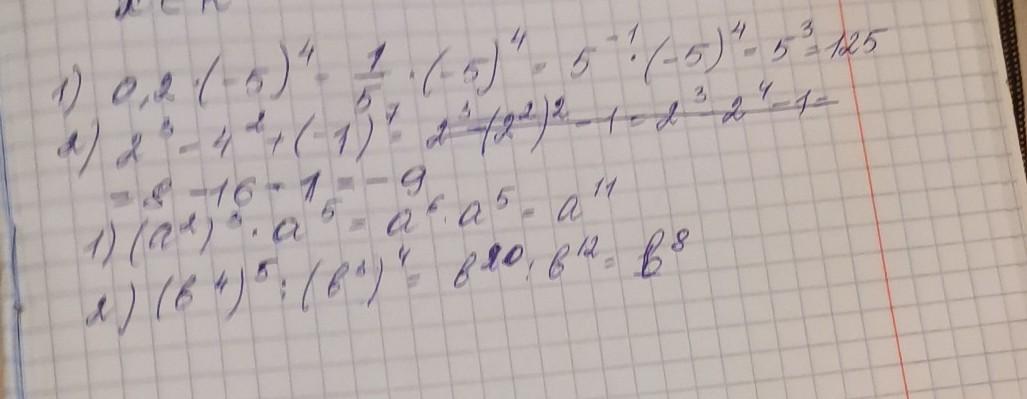 1) 0,2 · (-5)^4 = 1/5 · (-5)^4 = 5^-1 · (-5)^4 = 5^3 = 125
2) 2^3 - 4^2 + (-1)^7 = 2^3 - (2^2)^2 - 1 = 2^3 - 2^4 - 1 =
= 8 - 16 - 1 = -9
1) (a^2)^3 · a^5 = a^6 · a^5 = a^11
2) (в^4)^5 : (в^3)^4 = в^20 : в^12 = в^8